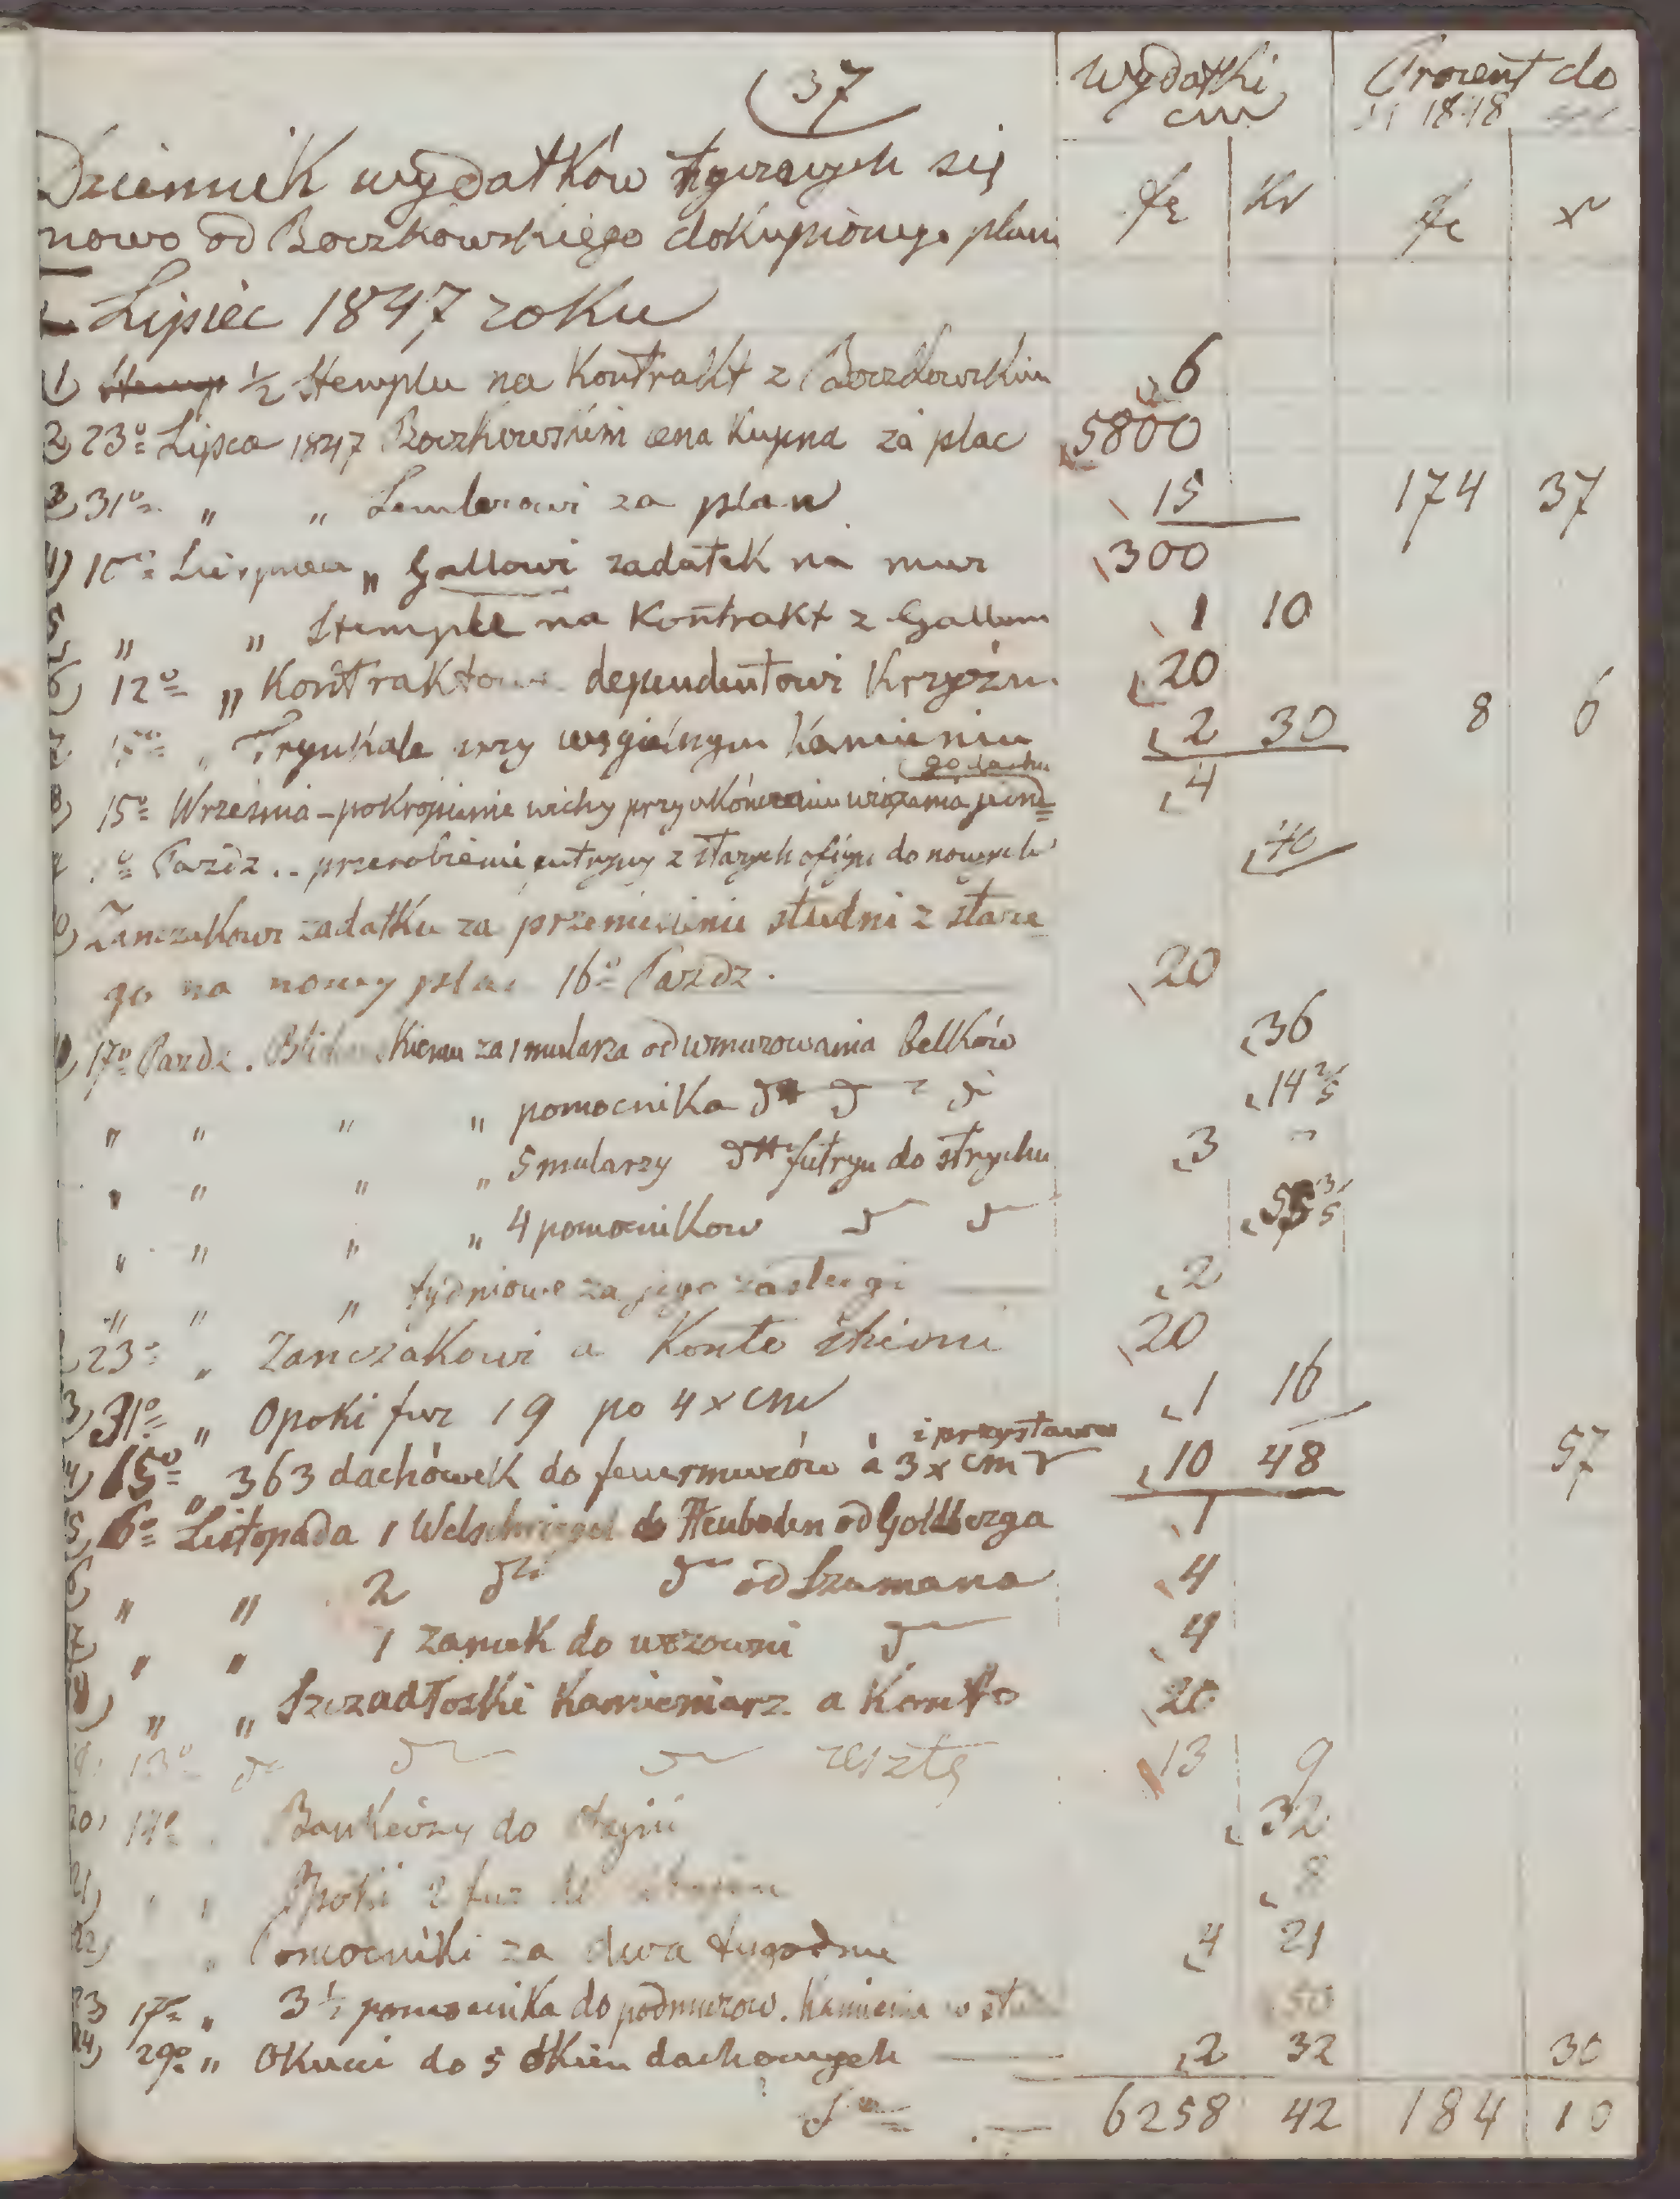 37
Wydatki
cm
Procent do
1848
Dziennik wydatków tyczących się
nowo od Boczkowskiego dokupionego placu
fr kr fr x
Lipiec 1847 roku
1) Stemp ½ Stemplu na Kontrakt z Boczkowskim 6
2) 23º Lipca 1847 Boczkowskim cena Kupna za plac 5800
3) 31º " " Lemlerowi za plan 15 174 37
4) 10º Sierpnia " Gallowi zadatek na mur 300
5) " " Stemple na Kontrakt z Gallem 1 10
6) 12º " Kontraktowe dependentowi Krzyżan 20
7) 15º " Trynkale przy węgielnym Kamieniu 2 30 8 6
go dachu
8) 15º Września – pokropienie wichy przy ukończeniu wiązania jedne= 4
1º Pazdz .. przerobienie futryny z starych oficyn do nowych 40
10) Zanczakowi zadatku za przeniesienie studni z stare
go na nowy plac 16º Pazdz. 20
17º Pazdz. za 1 mularza od wmurowania Belków 36
" " " " pomocnika dº d d 14 2/5
" " " " 5 mularzy dtt futryn do strychu 3 -
" " " " 4 pomocnikow d d 3/5
" " " tydniowe za jego zasługi 2
23º " Zanczakowi a Konto studni 20
13) 31º " Opoki fur 19 po 4 x cm 1 16
i przystawa
14) 15º " 363 dachówek do feuermurów à 3 x cm 10 48 57
15) 6º Listopada 1 do Heuboden od Goldberga 1
16) " " 2 dtt d od Szumana 4
17) " " 1 zamek do wozowni d 4
18) " " Szczadłoski Kamieniarz a Konto 20
19) 13º d d d resztę 13 9
20) 14º " do stajni 32
21) " " Opoki 2 fur do 8
22) " Pomocniki za dwa tygodnie 4 21
23 17º " 3½ pomocnika do podmurow. Kamienia w 50
24) 29º " Okucie do 5 okien dachowych 2 32 30
S 6258 42 184 10